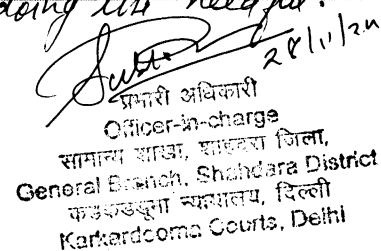 doing the needful.
28/11/24
प्रभारी अधिकारी
Officer-in-charge
सामान्य शाखा, शाहदरा जिला,
General Branch, Shahdara District
कड़कड़डूमा न्यायालय, दिल्ली
Karkardooma Courts, Delhi